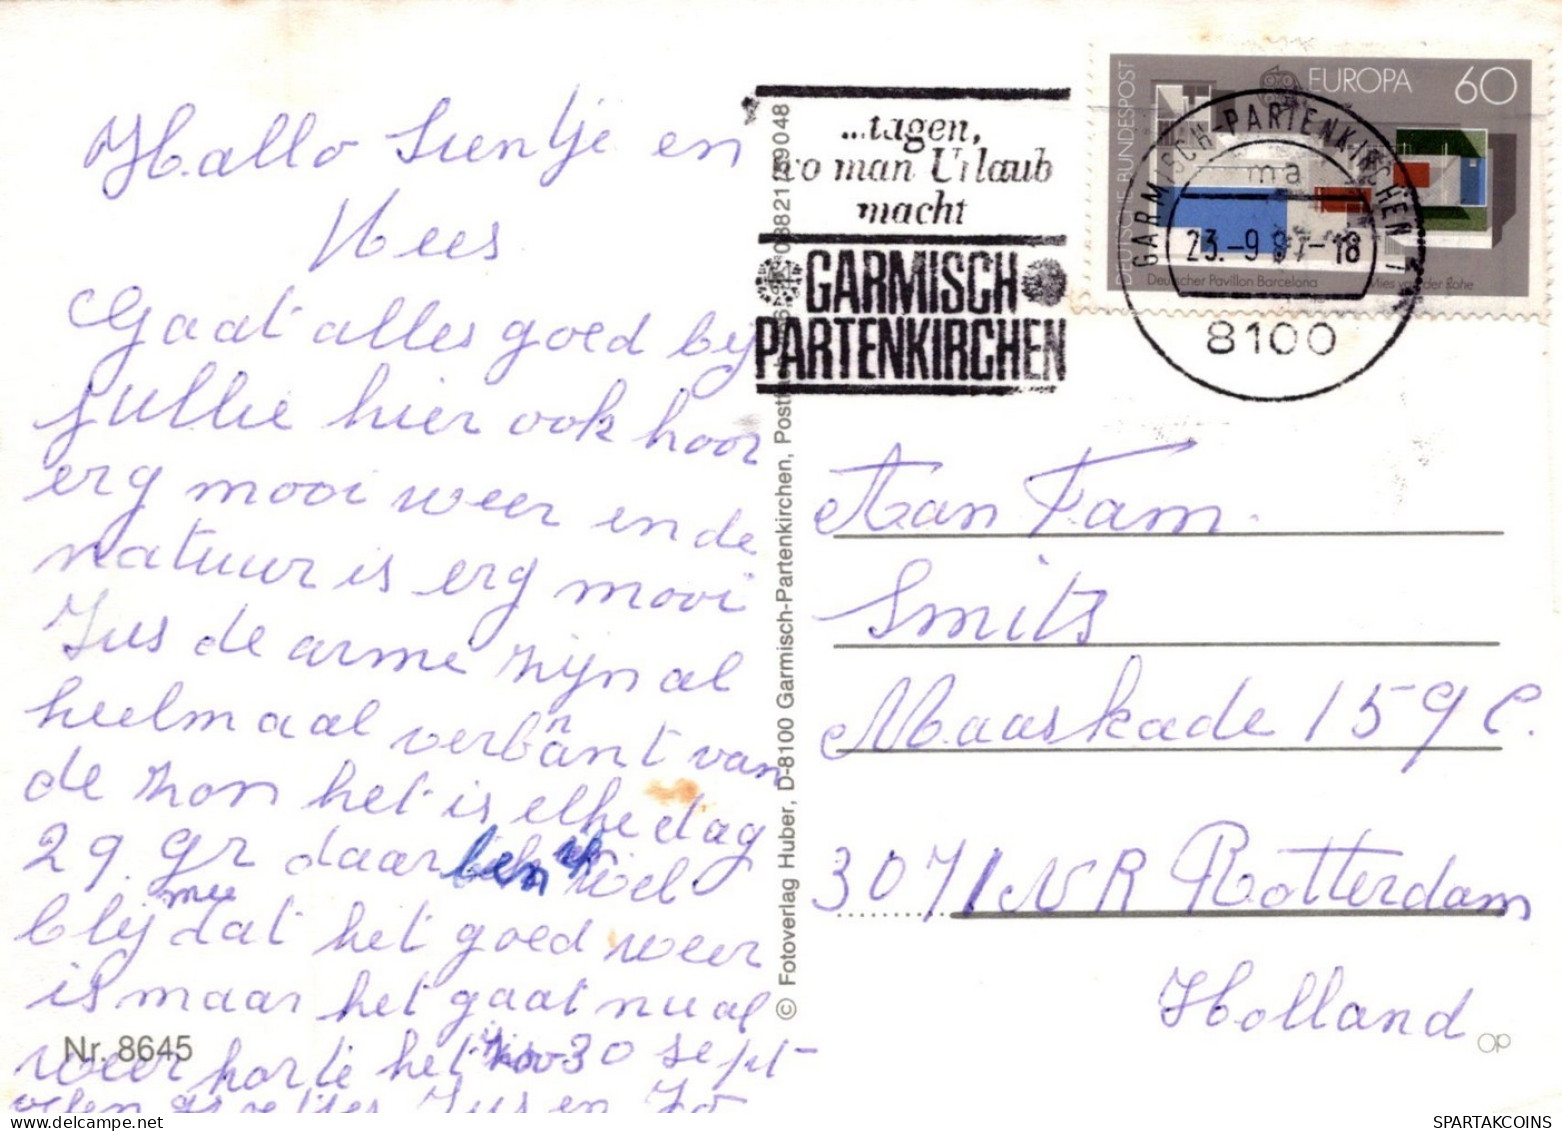 Hallo Sientje en
Kees
Gaat alles goed bij
jullie hier ook hoor
erg mooi weer en de
natuur is erg mooi
Jus de arme zijn al
heelmaal verbant van
n
de zon het is elke dag
29. gr daar ben ik wel
blij mee dat het goed weer
is maar het gaat nu al
weer horte het is 30 sept-
velen groetjes Jus en Jo
Nr. 8645
© Fotoverlag Huber, D-8100 Garmisch-Partenkirchen, 08821/59048
...tagen,
wo man Urlaub
macht
GARMISCH
PARTENKIRCHEN
DEUTSCHE BUNDESPOST
EUROPA 60
Deutscher Pavillon Barcelona Mies van der Rohe
GARMISCH-PARTENKIRCHEN 1
ma
23.-9 87-18
8100
Aan Fam.
Smits
Maaskade 159 C.
3071 NR Rotterdam
Holland
SPARTAKCOINS